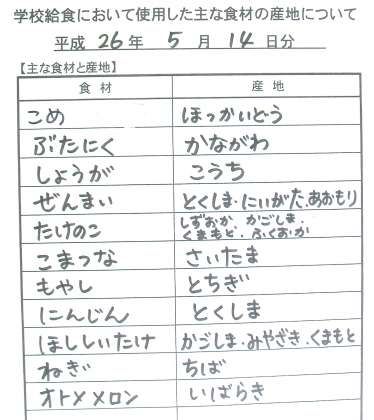 学校給食において使用した主な食材の産地について
平成 26 年 5 月 14 日分
【主な食材と産地】
食 材 産 地
こめ ほっかいどう
ぶたにく かながわ
しょうが こうち
ぜんまい とくしま・にいがた、あおもり
たけのこ しずおか かごしま・
くまもと・ふくおか
こまつな さいたま
もやし とちぎ
にんじん とくしま
ほししいたけ かごしま・みやざき・くまもと
ねぎ ちば
オトメメロン いばらき